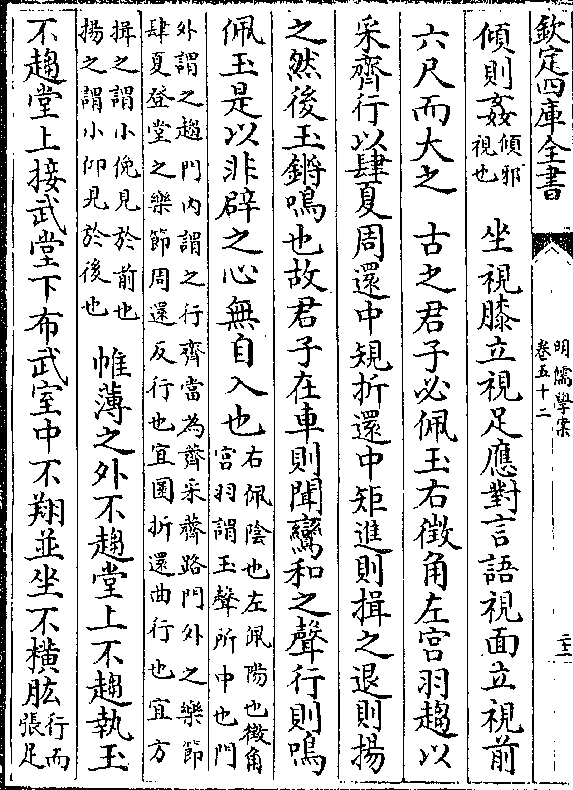 欽定四庫全書
明儒學案
卷五十二
二十三
傾則姦傾邪視也　坐視膝立視足應對言語視面立視前
六尺而大之　古之君子必佩玉右徵角左宮羽趨以
采齊行以肆夏周還中規折還中矩進則揖之退則揚
之然後玉鏘鳴也故君子在車則聞鸞和之聲行則鳴
佩玉是以非辟之心無自入也右佩隂也左佩陽也徵角宮羽謂玉聲所中也門
外謂之趨門内謂之行齊當為薺采薺路門外之樂節肆夏登堂之樂節周還反行也宜圜折還曲行也宜方
揖之謂小俛見於前也揚之謂小仰見於後也　帷薄之外不趨堂上不趨執玉
不趨堂上接武堂下布武室中不翔並坐不横肱行而張足